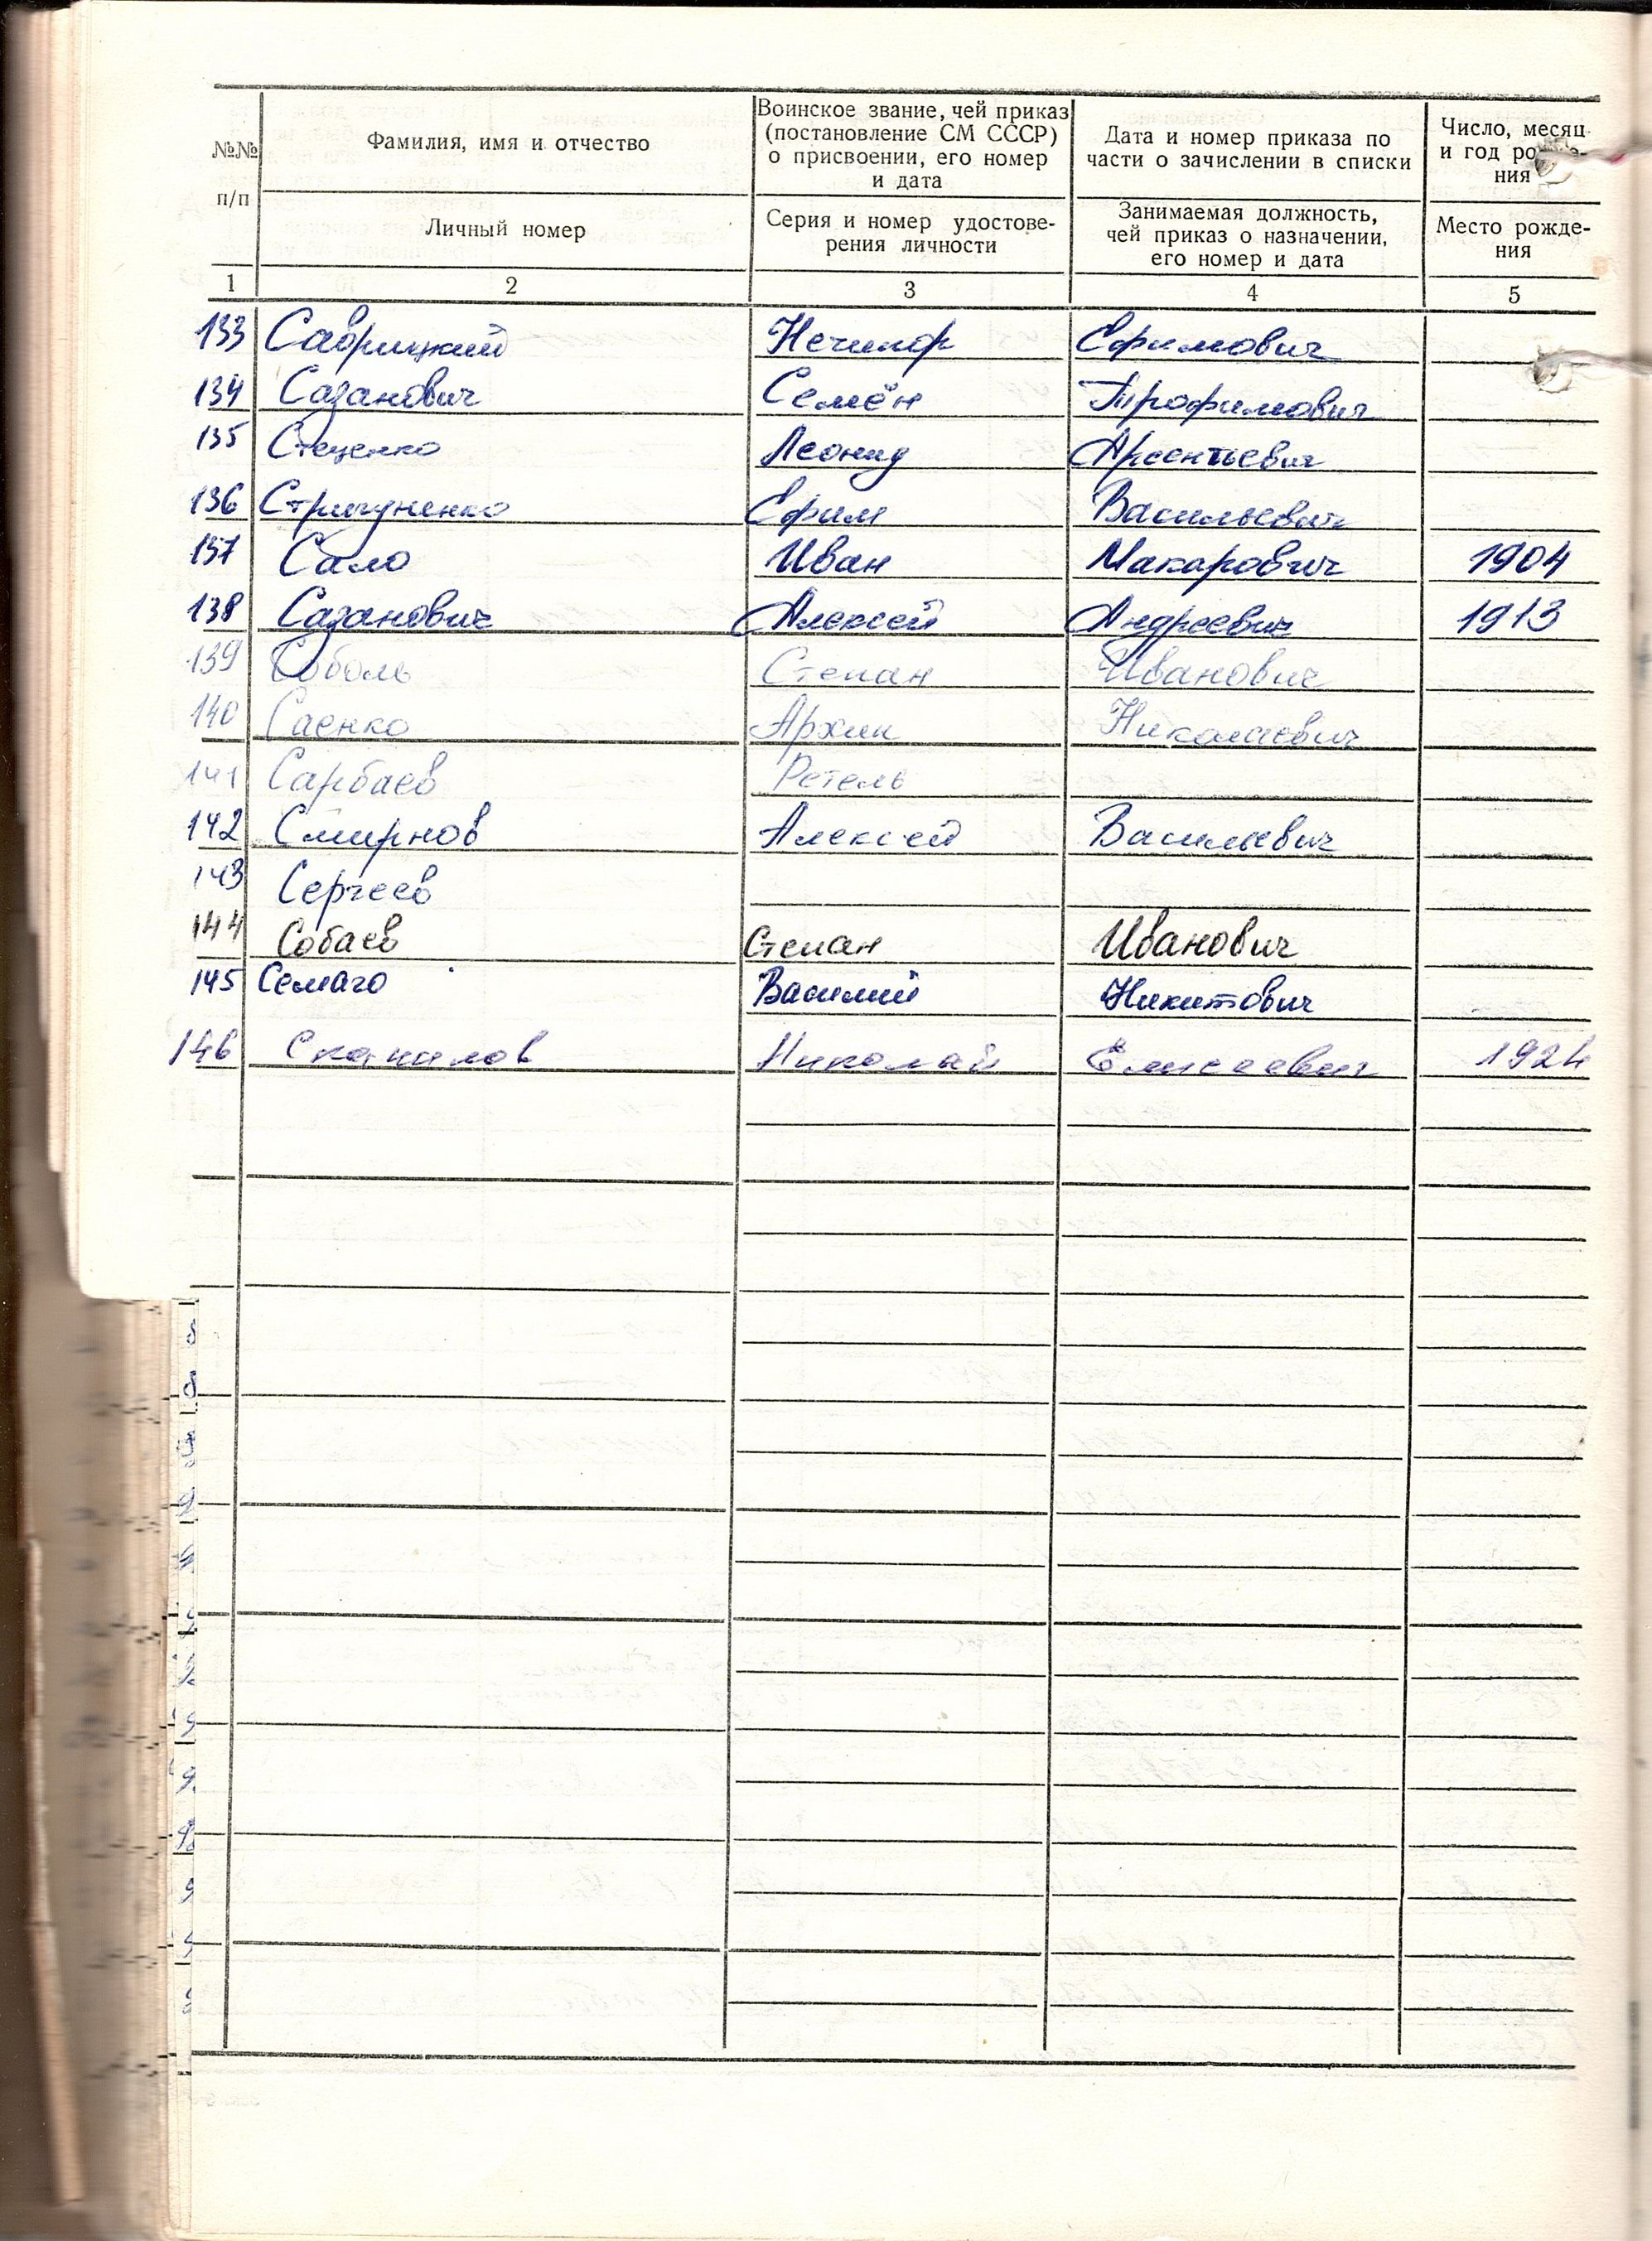 №№ п/п
Фамилия, имя и отчество
Личный номер
Воинское звание, чей приказ
(постановление СМ СССР)
о присвоении, его номер
и дата
Серия и номер удостове-
рения личности
Дата и номер приказа по
части о зачислении в списки
Занимаемая должность,
чей приказ о назначении,
его номер и дата
Число, месяц
и год
ния
Место рожде-
ния
1 2 3 4 5
133 Саврицкий Нечипор Ефимович
134 Сазанович Семён Трофимович
135 Стеценко Леонид Арсентьевич
136 Стригуненко Ефим Васильевич
137 Сало Иван Макарович 1904
138 Сазанович Алексей Андреевич 1913
139 Соболь Степан Иванович
140 Саенко Архип Николаевич
141 Сарбаев Ретель
142 Смирнов Алексей Васильевич
143 Сергеев
144 Собаев Степан Иванович
145 Семаго Василий Никитович
146 Николай Елисеевич 1924